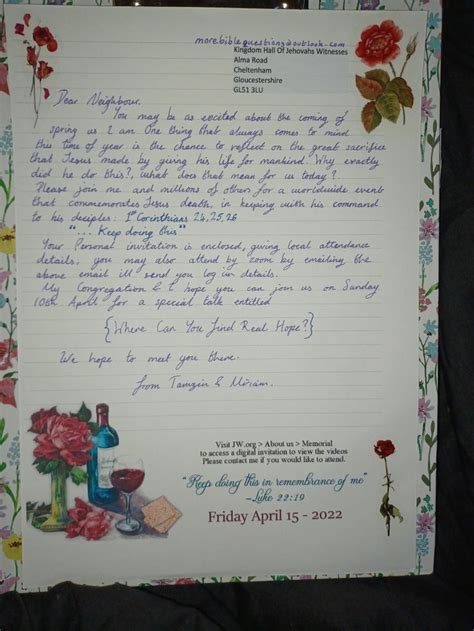 morebiblequestions@outlook.com
Kingdom Hall Of Jehovahs Witnesses
Alma Road
Cheltenham
Gloucestershire
GL51 3LU
Dear Neighbour,
You may be as excited about the coming of
spring as I am. One thing that always comes to mind
this time of year is the chance to reflect on the great sacrifice
that Jesus made by giving his life for mankind. Why exactly
did he do this?, What does that mean for us today?
Please join me and millions of others for a worldwide event
that commemorates Jesus death, in keeping with his command
to his deciples: 1st Corinthians 24,25,26
"... Keep doing this"
Your Personal invitation is enclosed, giving local attendance
details, you may also attend by zoom by emailing the
above email ill send you log in details.
My Congregation & I hope you can join us on Sunday
10th April for a special talk entitled
{Where Can You Find Real Hope?}
We hope to meet you there.
from Tamzin & Miriam.
Visit JW.org > About us > Memorial
to access a digital invitation to view the videos
Please contact me if you would like to attend.
"Keep doing this in remembrance of me"
-Luke 22:19
Friday April 15 - 2022